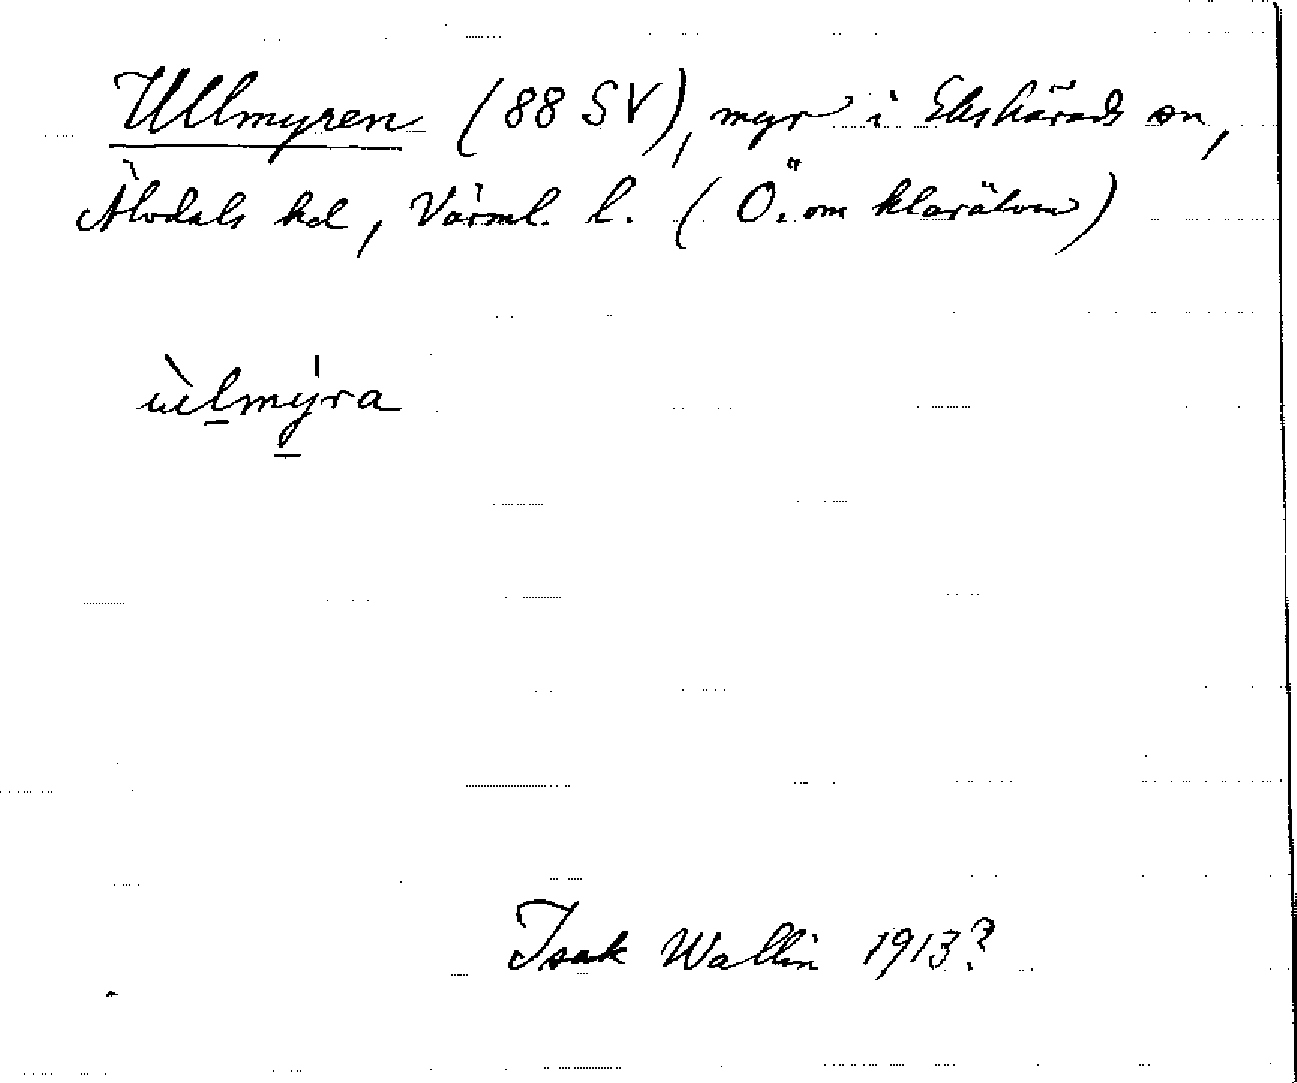 Ullmyren (88 SV), myr i Ekshärads sn,
Älvdals hd, Värml. l. (Ö. om Klarälven)
ùlmýra
Isak Wallin 1913?